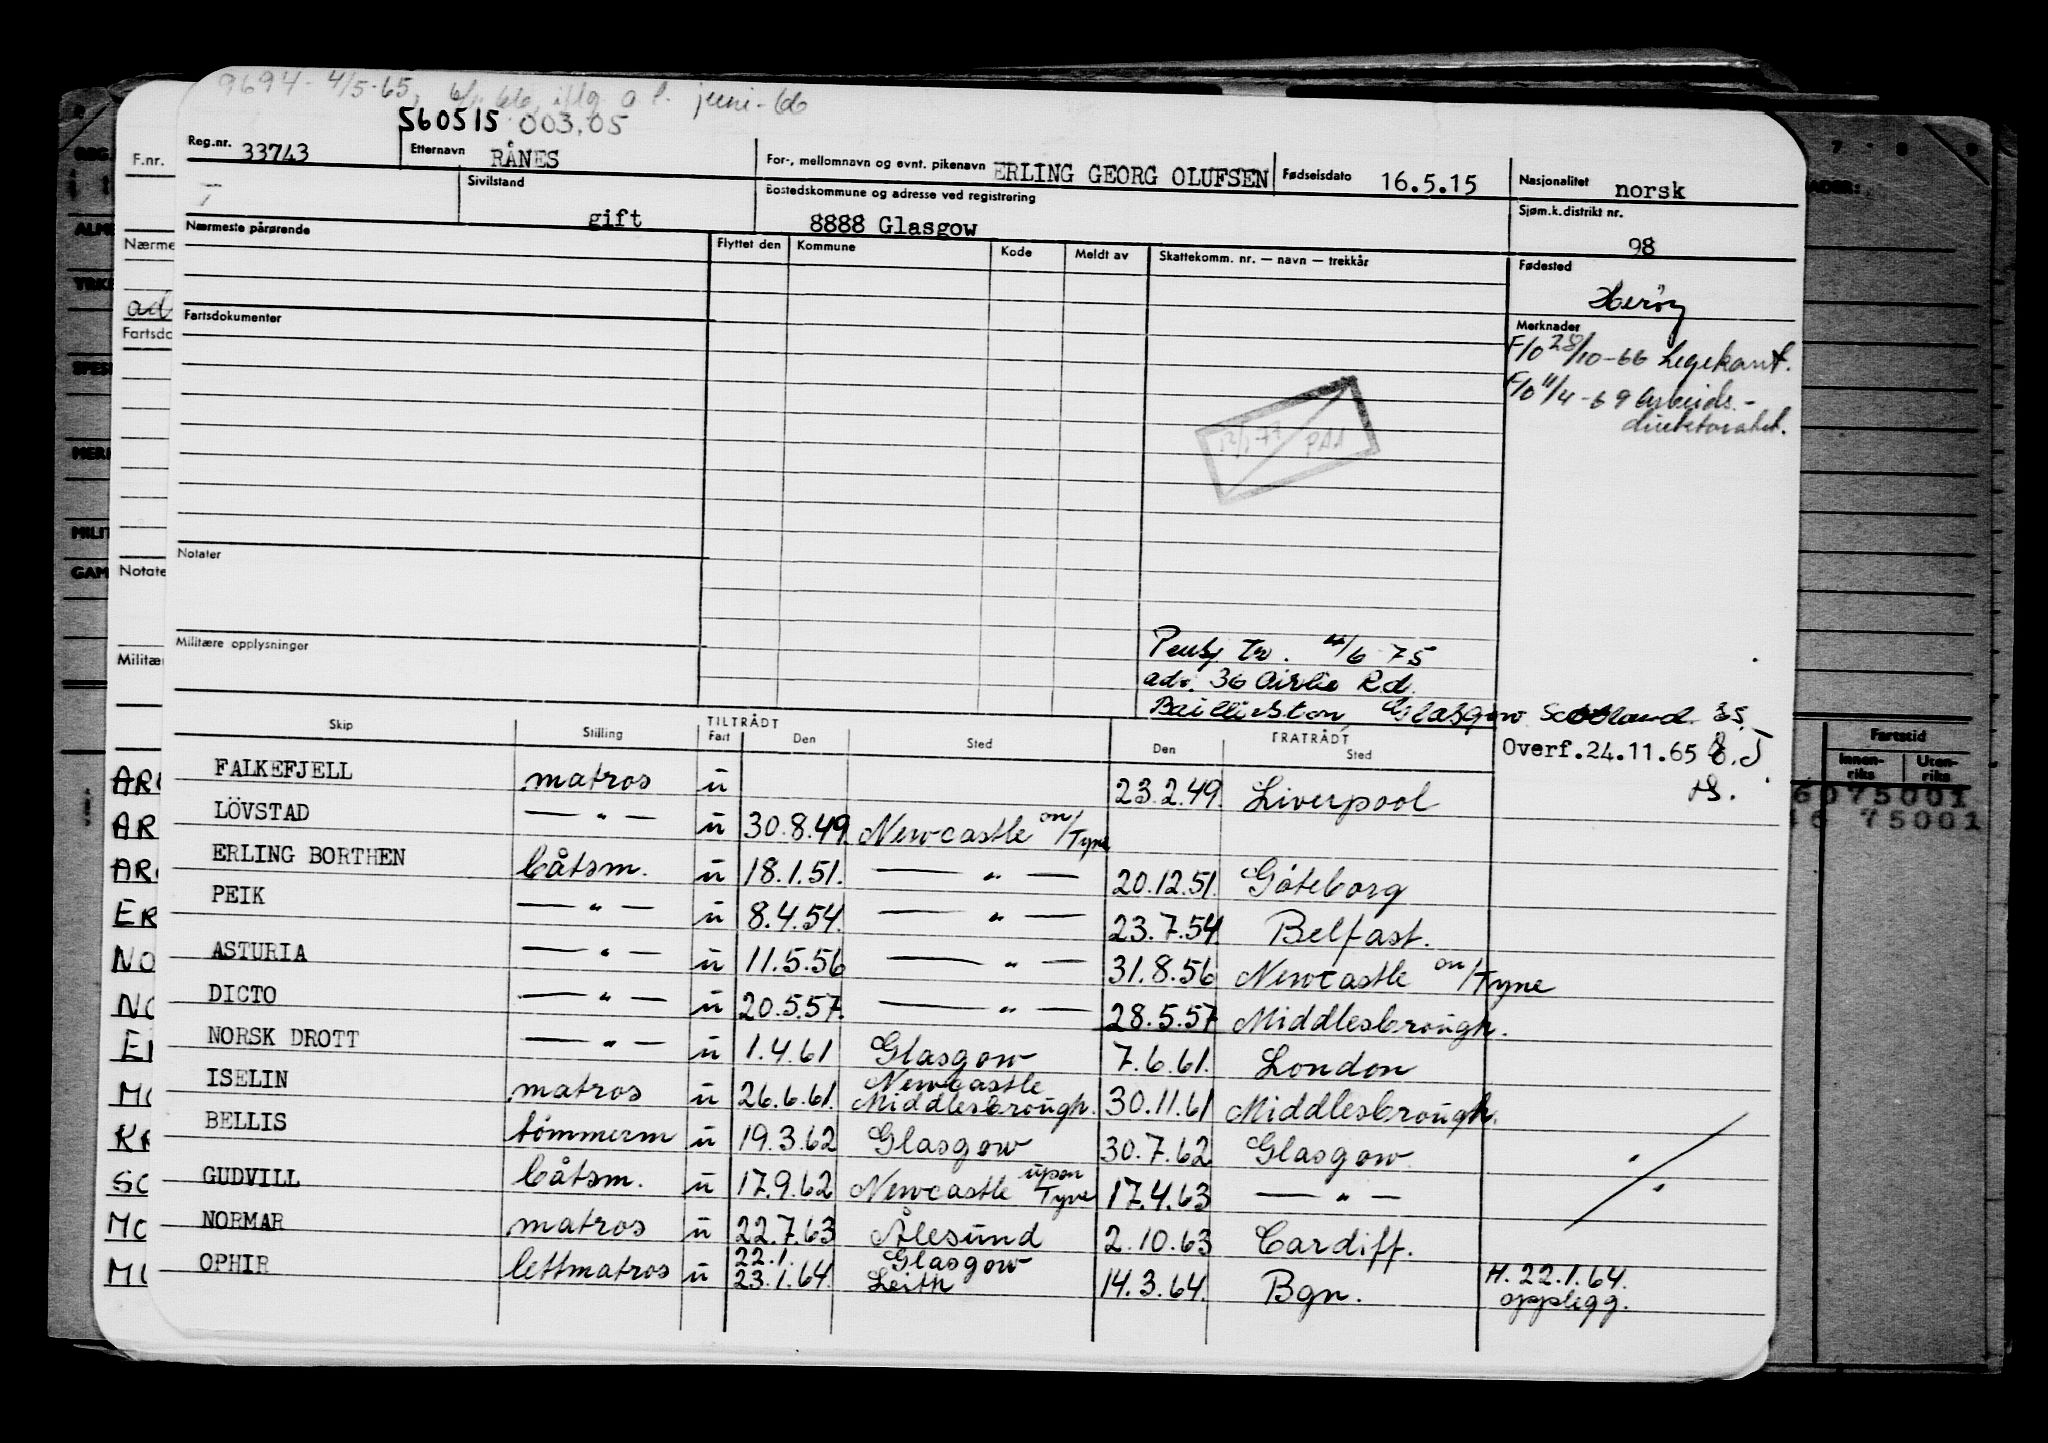 9694 - 4/5-65, juni - 66
560515 003.05
Reg.nr. 33743 Etternavn RÅNES For-, mellomnavn og evnt. pikenavn ERLING GEORG OLUFSEN Fødselsdato 16.5.15 Nasjonalitet norsk
F.nr.
Sivilstand gift Bostedskommune og adresse ved registrering 8888 Glasgow Sjøm.k.distrikt nr. 98
Nærmeste pårørende Flyttet den Kommune Kode Meldt av Skattekomm. nr. — navn — trekkår Fødested
Herøy
Fartsdokumenter Merknader
F/o 28/10-66 Legekont.
F/o 11/4-69 Arbeids-
direktoratet.
Notater
Militære opplysninger
adr. 36 Airlie Rd.
Baillieston, Glasgow Scotland
Overf.24.11.65
Skip Stilling TILTRÅDT Fart Den Sted FRATRÅDT Den Sted
FALKEFJELL matros u 23.2.49. Liverpool
LÖVSTAD — " — u 30.8.49. Newcastle on/Tyne
ERLING BORTHEN båtsm. u 18.1.51. — " — 20.12.51. Göteborg
PEIK — " — u 8.4.54. — " — 23.7.54. Belfast.
ASTURIA — " — u 11.5.56 — " — 31.8.56 Newcastle on/Tyne
DICTO — " — u 20.5.57. — " — 28.5.57 Middlesbrough.
NORSK DROTT — " — u 1.4.61 Glasgow 7.6.61. London
ISELIN matros u 26.6.61. Newcastle Middlesbrough. 30.11.61 Middlesbrough.
BELLIS tömmerm u 19.3.62 Glasgow 30.7.62 Glasgow
GUDVILL båtsm. u 17.9.62 Newcastle upon Tyne 17.4.63 — " —
NORMAR matros u 22.7.63 Ålesund 2.10.63 Cardiff.
OPHIR lettmatros u 22.1. 23.1.64. Glasgow Leith 14.3.64. Bgn. H. 22.1.64. opplegg.
Fartstid
Innen-riks Uten-riks
6075001
75001